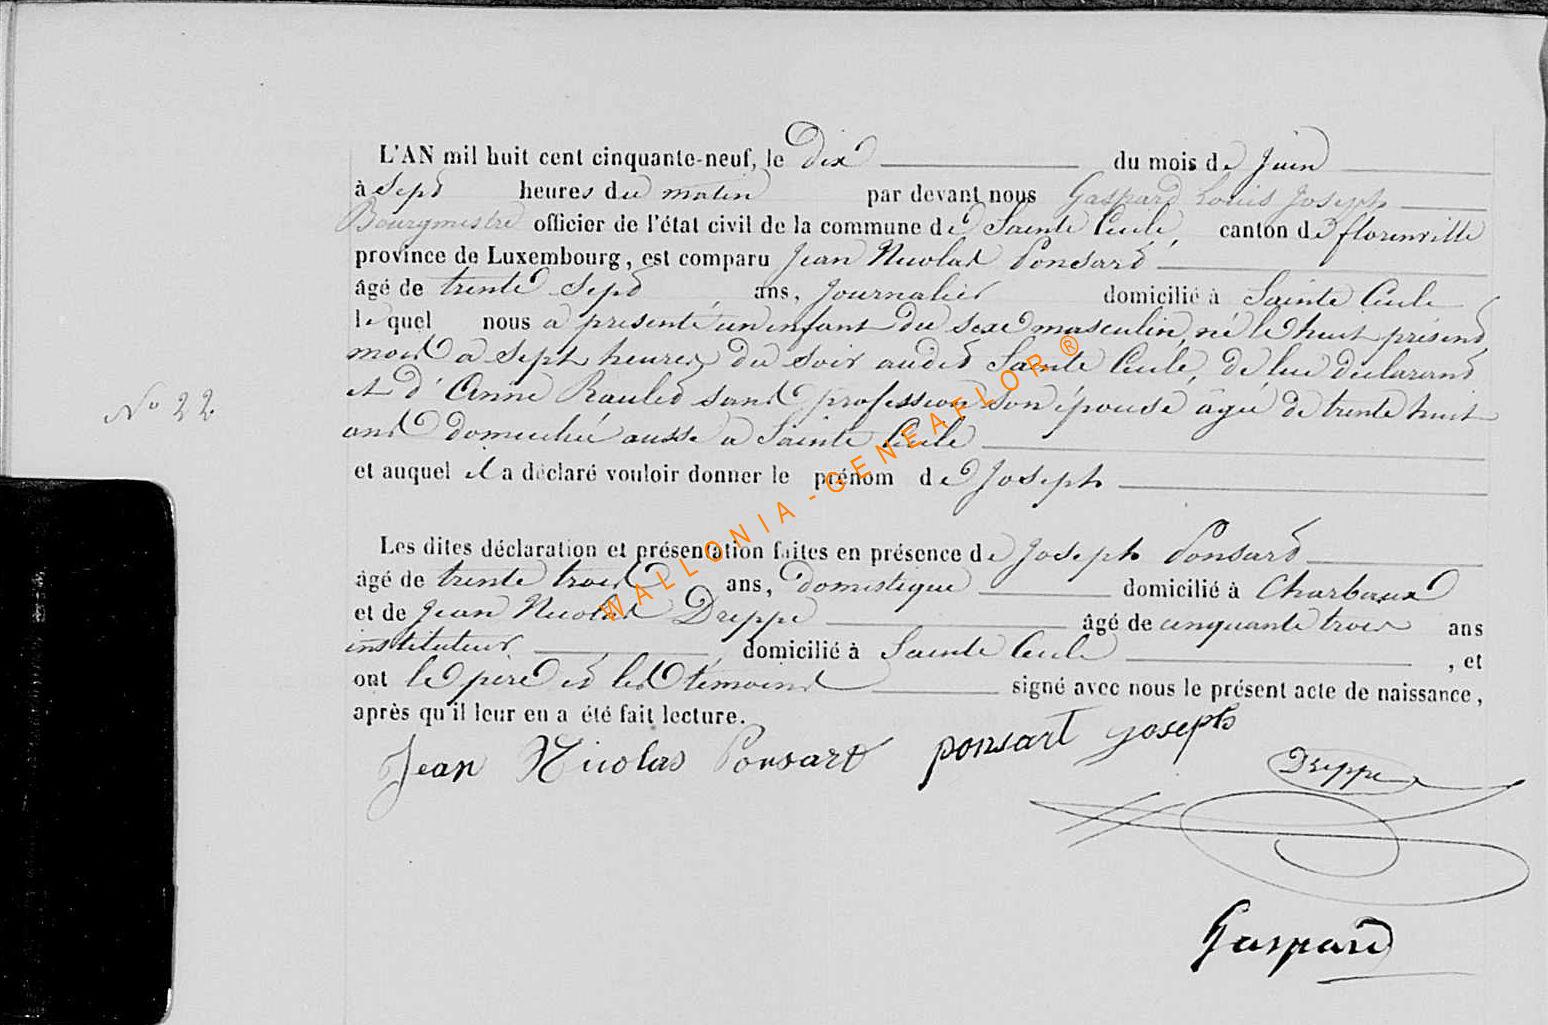 L'AN mil huit cent cinquante-neuf, le Dix du mois de Juin
à Sept heures du matin par devant nous Gaspard Louis Joseph
Bourgmestre officier de l'état civil de la commune de Sainte Cécile, canton de florenville
province de Luxembourg, est comparu Jean Nicolas Ponsard
âgé de trente Sept ans, Journalier domicilié à Sainte Cécile
lequel nous a présenté un enfant du sexe masculin, né le huit présent
mois a sept heures du soir audit Sainte Cécile, de lui déclarant
et d'Anne Raulet sans profession son épouse agée de trente huit
ans domiciliée aussi a Sainte Cécile
et auquel il a déclaré vouloir donner le prénom de Joseph
No 22.
Les dites déclaration et présentation faites en présence de Joseph Ponsard
âgé de trente trois ans, domestique domicilié à Charbeaux
et de Jean Nicolas Dreppe âgé de cinquante trois ans
instituteur domicilié à Sainte Cécile, et
ont le père et les témoins signé avec nous le présent acte de naissance,
après qu'il leur en a été fait lecture.
Jean Nicolas Ponsart ponsart joseph
Dreppe
Gaspard
WALLONIA - GENEAFLOR ®